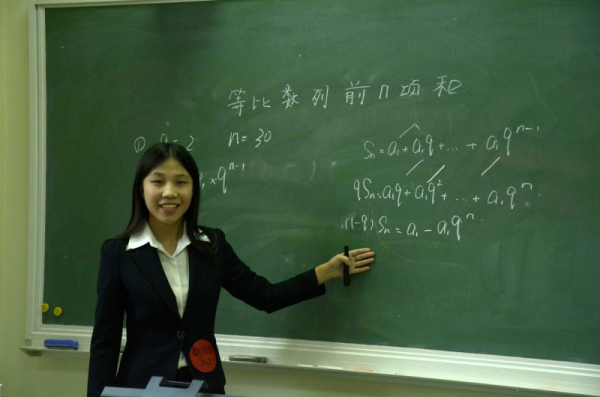 等比数列前n项和
n=30
Sₙ=a₁+a₁q+…+a₁qⁿ⁻¹
×qⁿ⁻¹
qSₙ=a₁q+a₁q²+…+a₁qⁿ
(1-q)Sₙ=a₁-a₁qⁿ